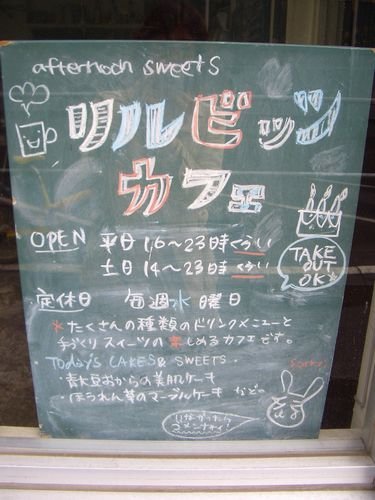 afternoon sweets
リルビッツ
カフェ
OPEN 平日 16〜23時くらい
土日 14〜23時くらい
TAKE
OUT
OK!
定休日 毎週水曜日
※たくさんの種類のドリンクメニューと
手づくりスイーツの楽しめるカフェです。
・TODAY'S CAKES & SWEETS・
・素大豆おからの美肌ケーキ
・ほうれん草のマーブルケーキ など。
Sorry
いなかったら
ゴメンナサイ!